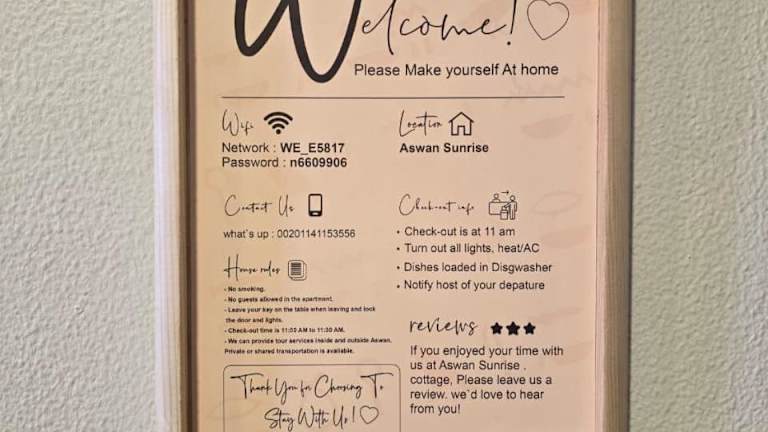 Welcome!
Please Make yourself At home
Wifi
Network : WE_E5817
Password : n6609906
Location
Aswan Sunrise
Contact Us
what`s up : 00201141153556
Check-out info
• Check-out is at 11 am
• Turn out all lights, heat/AC
• Dishes loaded in Disgwasher
• Notify host of your depature
House rules
- No smoking.
- No guests allowed in the apartment.
- Leave your key on the table when leaving and lock
the door and lights.
- Check-out time is 11:00 AM to 11:30 AM.
- We can provide tour services inside and outside Aswan.
Private or shared transportation is available.
reviews
If you enjoyed your time with
us at Aswan Sunrise .
cottage, Please leave us a
review. we`d love to hear
from you!
Thank You for Choosing To
Stay With Us!